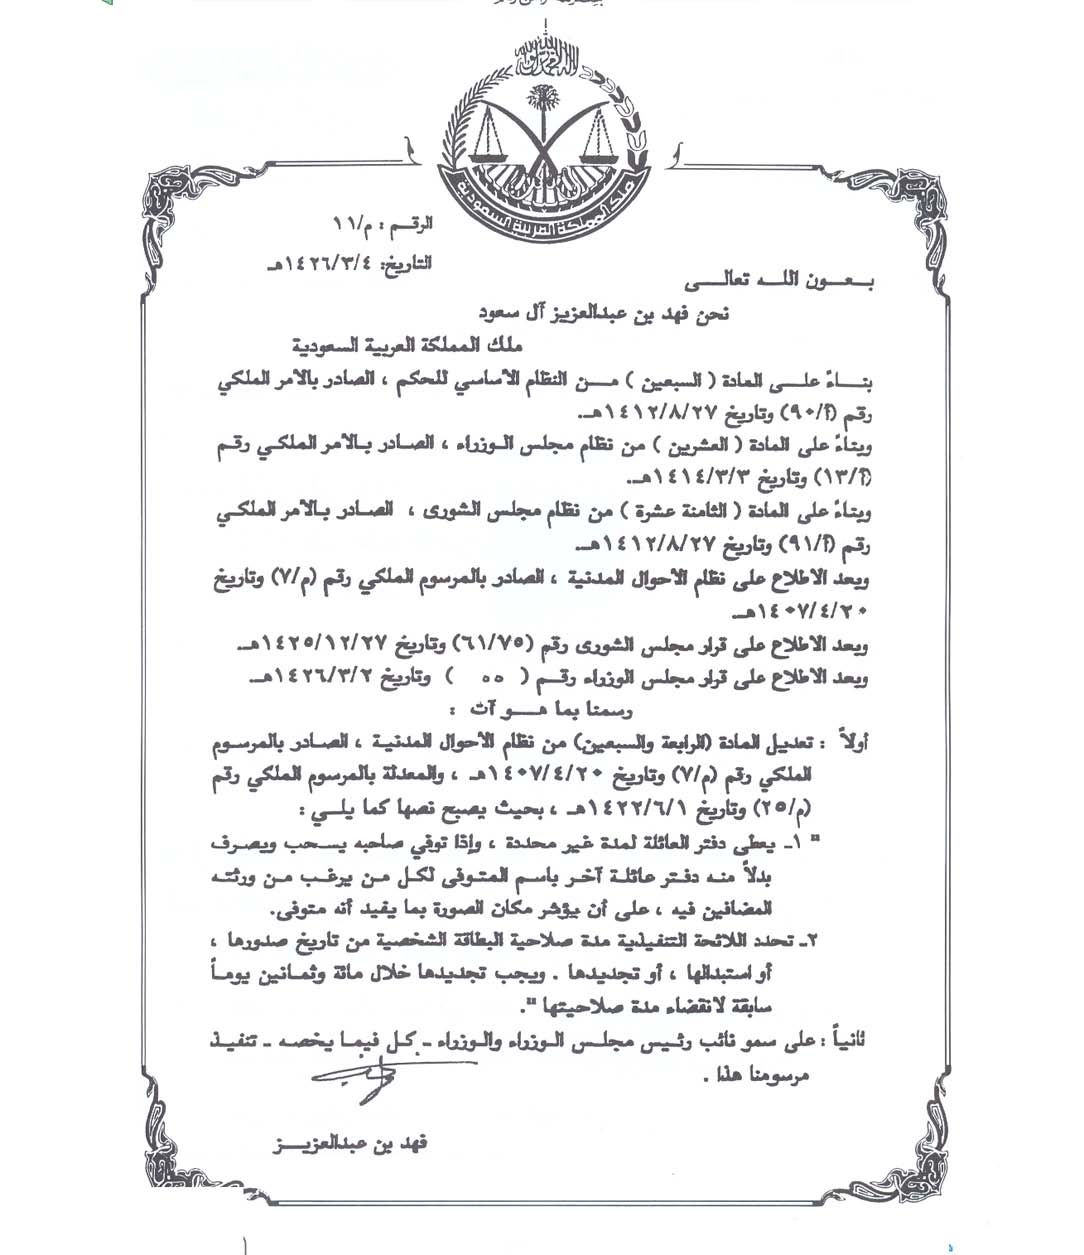 ملك المملكة العربية السعودية
الرقـــم : م/١١
التاريخ: ١٤٢٦/٣/٤هـ
بـعـــون اللـــه تعالـــى
نحن فهد بن عبدالعزيز آل سعود
ملك المملكة العربية السعودية
بنـــاءً علـــى المادة ( السبعين ) مـــن النظام الأساسي للحكم ، الصادر بالأمر الملكي
رقم (أ/٩٠) وتاريخ ١٤١٢/٨/٢٧هـ.
وبناءً على المادة ( العشرين ) من نظام مجلس الوزراء ، الصادر بـالأمر الملكـي رقـم
(أ/١٣) وتاريخ ١٤١٤/٣/٣هـ.
وبناءً على المادة ( الثامنة عشرة ) من نظام مجلس الشورى ، الصادر بـالأمر الملكـي
رقم (أ/٩١) وتاريخ ١٤١٢/٨/٢٧هـ.
وبعد الاطلاع على نظام الأحوال المدنية ، الصادر بالمرسوم الملكي رقم (م/٧) وتاريخ
١٤٠٧/٤/٢٠هـ.
وبعد الاطلاع على قرار مجلس الشورى رقم (٦١/٧٥) وتاريخ ١٤٢٥/١٢/٢٧هـ.
وبعد الاطلاع على قرار مجلس الوزراء رقـم ( ٥٥ ) وتاريخ ١٤٢٦/٣/٢هـ.
رسمنا بما هـــو آت :
أولاً : تعديل المادة (الرابعة والسبعين) من نظام الأحوال المدنيـة ، الصادر بالمرسوم
الملكي رقم (م/٧) وتاريخ ١٤٠٧/٤/٢٠هـ ، والمعدلة بالمرسوم الملكي رقم
(م/٢٥) وتاريخ ١٤٢٢/٦/١هـ ، بحيث يصبح نصها كما يلـي :
" ١ـ يعطى دفتر العائلة لمدة غير محددة ، وإذا توفي صاحبه يسحب ويصرف
بدلاً منه دفتر عائلة آخر باسم المتوفى لكل من يرغب من ورثته
المضافين فيه ، على أن يؤشر مكان الصورة بما يفيد أنه متوفى.
٢ـ تحدد اللائحة التنفيذية مدة صلاحية البطاقة الشخصية من تاريخ صدورها ،
أو استبدالها ، أو تجديدها . ويجب تجديدها خلال مائة وثمانين يومـاً
سابقة لانقضاء مدة صلاحيتها ".
ثانياً : على سمو نائب رئيس مجلس الوزراء والوزراء ـ كل فيما يخصه ـ تنفيذ
مرسومنا هذا .
فهد بن عبدالعزيـــز